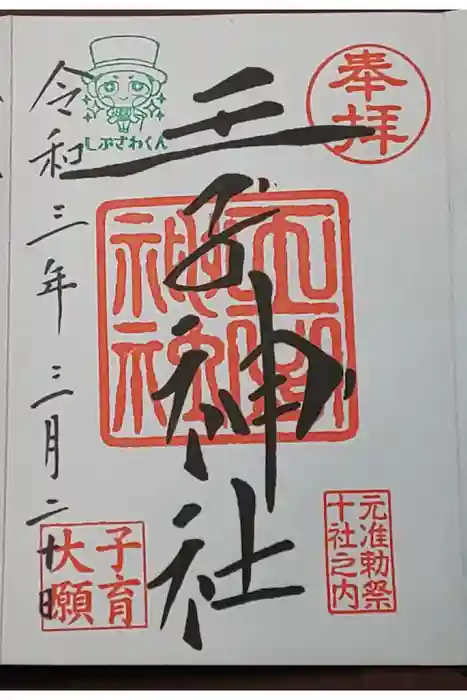 奉拝
王子神社
王子神社
元准勅祭
十社之内
しぶさわくん
令和三年三月二十日
子育
大願